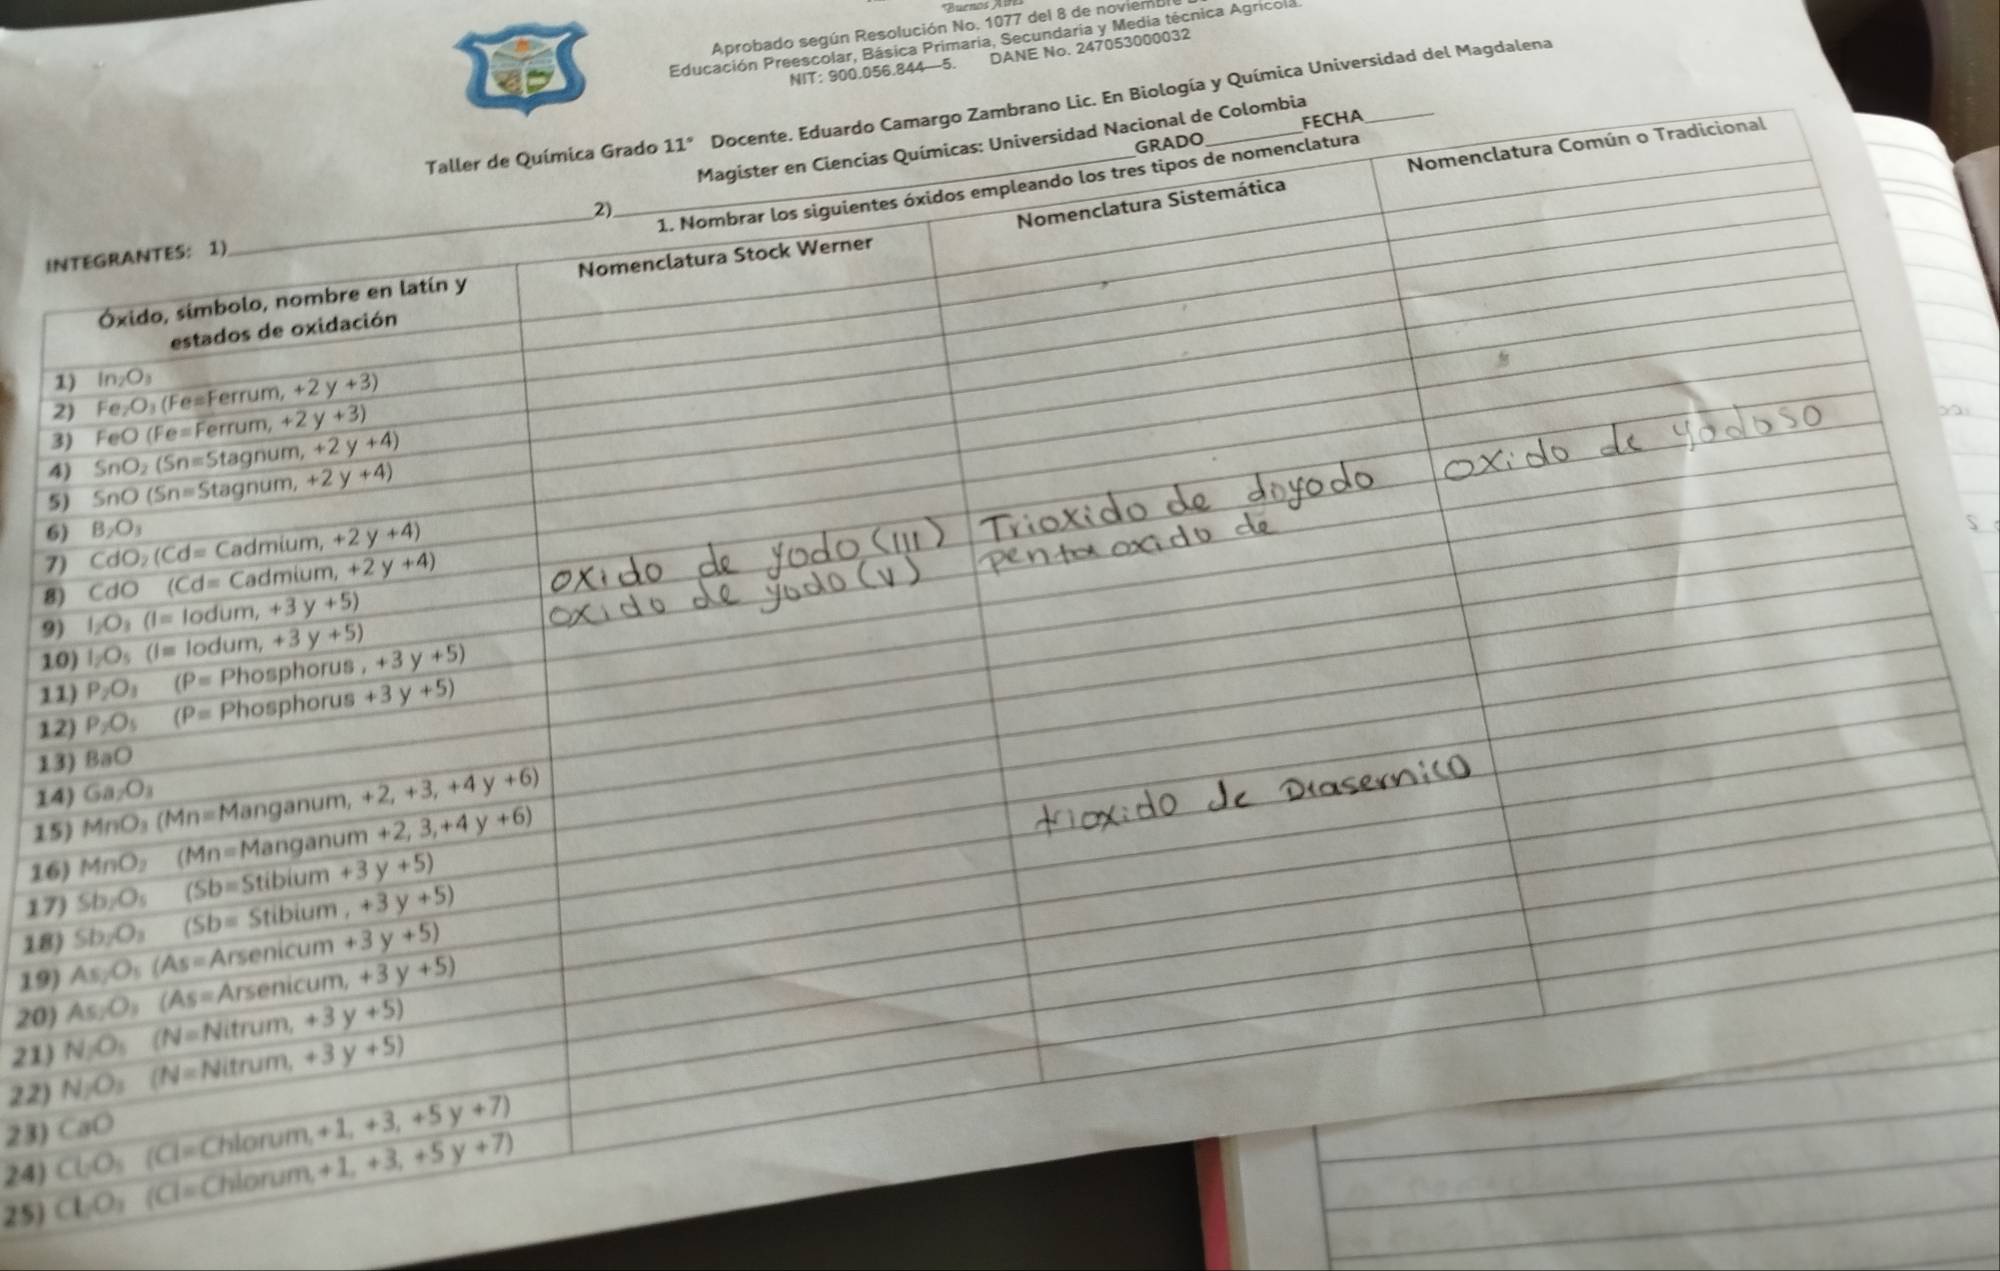 Buenos Aires
Aprobado según Resolución No. 1077 del 8 de noviembre
Educación Preescolar, Básica Primaria, Secundaria y Media técnica Agrícola.
NIT: 900.056.844—5. DANE No. 247053000032
Taller de Química Grado 11° Docente. Eduardo Camargo Zambrano Lic. En Biología y Química Universidad del Magdalena
Magister en Ciencias Químicas: Universidad Nacional de Colombia
INTEGRANTES: 1)____ 2)____ GRADO____ FECHA____
1. Nombrar los siguientes óxidos empleando los tres tipos de nomenclatura
Óxido, símbolo, nombre en latín y estados de oxidación
Nomenclatura Stock Werner
Nomenclatura Sistemática
Nomenclatura Común o Tradicional
1) In₂O₃
2) Fe₂O₃ (Fe=Ferrum, +2 y +3)
3) FeO (Fe=Ferrum, +2 y +3)
4) SnO₂ (Sn=Stagnum, +2 y +4)
5) SnO (Sn=Stagnum, +2 y +4)
6) B₂O₃
7) CdO₂ (Cd= Cadmium, +2 y +4)
8) CdO (Cd= Cadmium, +2 y +4)
9) I₂O₃ (I= Iodum, +3 y +5) oxido de yodo (III) Trioxido de doyodo oxido de yodoso
10) I₂O₅ (I= Iodum, +3 y +5) oxido de yodo (V) pentaoxido de
11) P₂O₃ (P= Phosphorus , +3 y +5)
12) P₂O₅ (P= Phosphorus +3 y +5)
13) BaO
14) Ga₂O₃
15) MnO₃ (Mn=Manganum, +2, +3, +4 y +6)
16) MnO₂ (Mn=Manganum +2, 3,+4 y +6)
17) Sb₂O₅ (Sb=Stibium +3 y +5)
18) Sb₂O₃ (Sb= Stibium , +3 y +5)
19) As₂O₅ (As=Arsenicum +3 y +5)
20) As₂O₃ (As=Arsenicum, +3 y +5)
trioxido de Diasernico
21) N₂O₅ (N=Nitrum, +3 y +5)
22) N₂O₃ (N=Nitrum, +3 y +5)
23) CaO
24) Cl₂O₅ (Cl=Chlorum,+1, +3, +5 y +7)
25) Cl₂O₃ (Cl=Chlorum,+1, +3, +5 y +7)